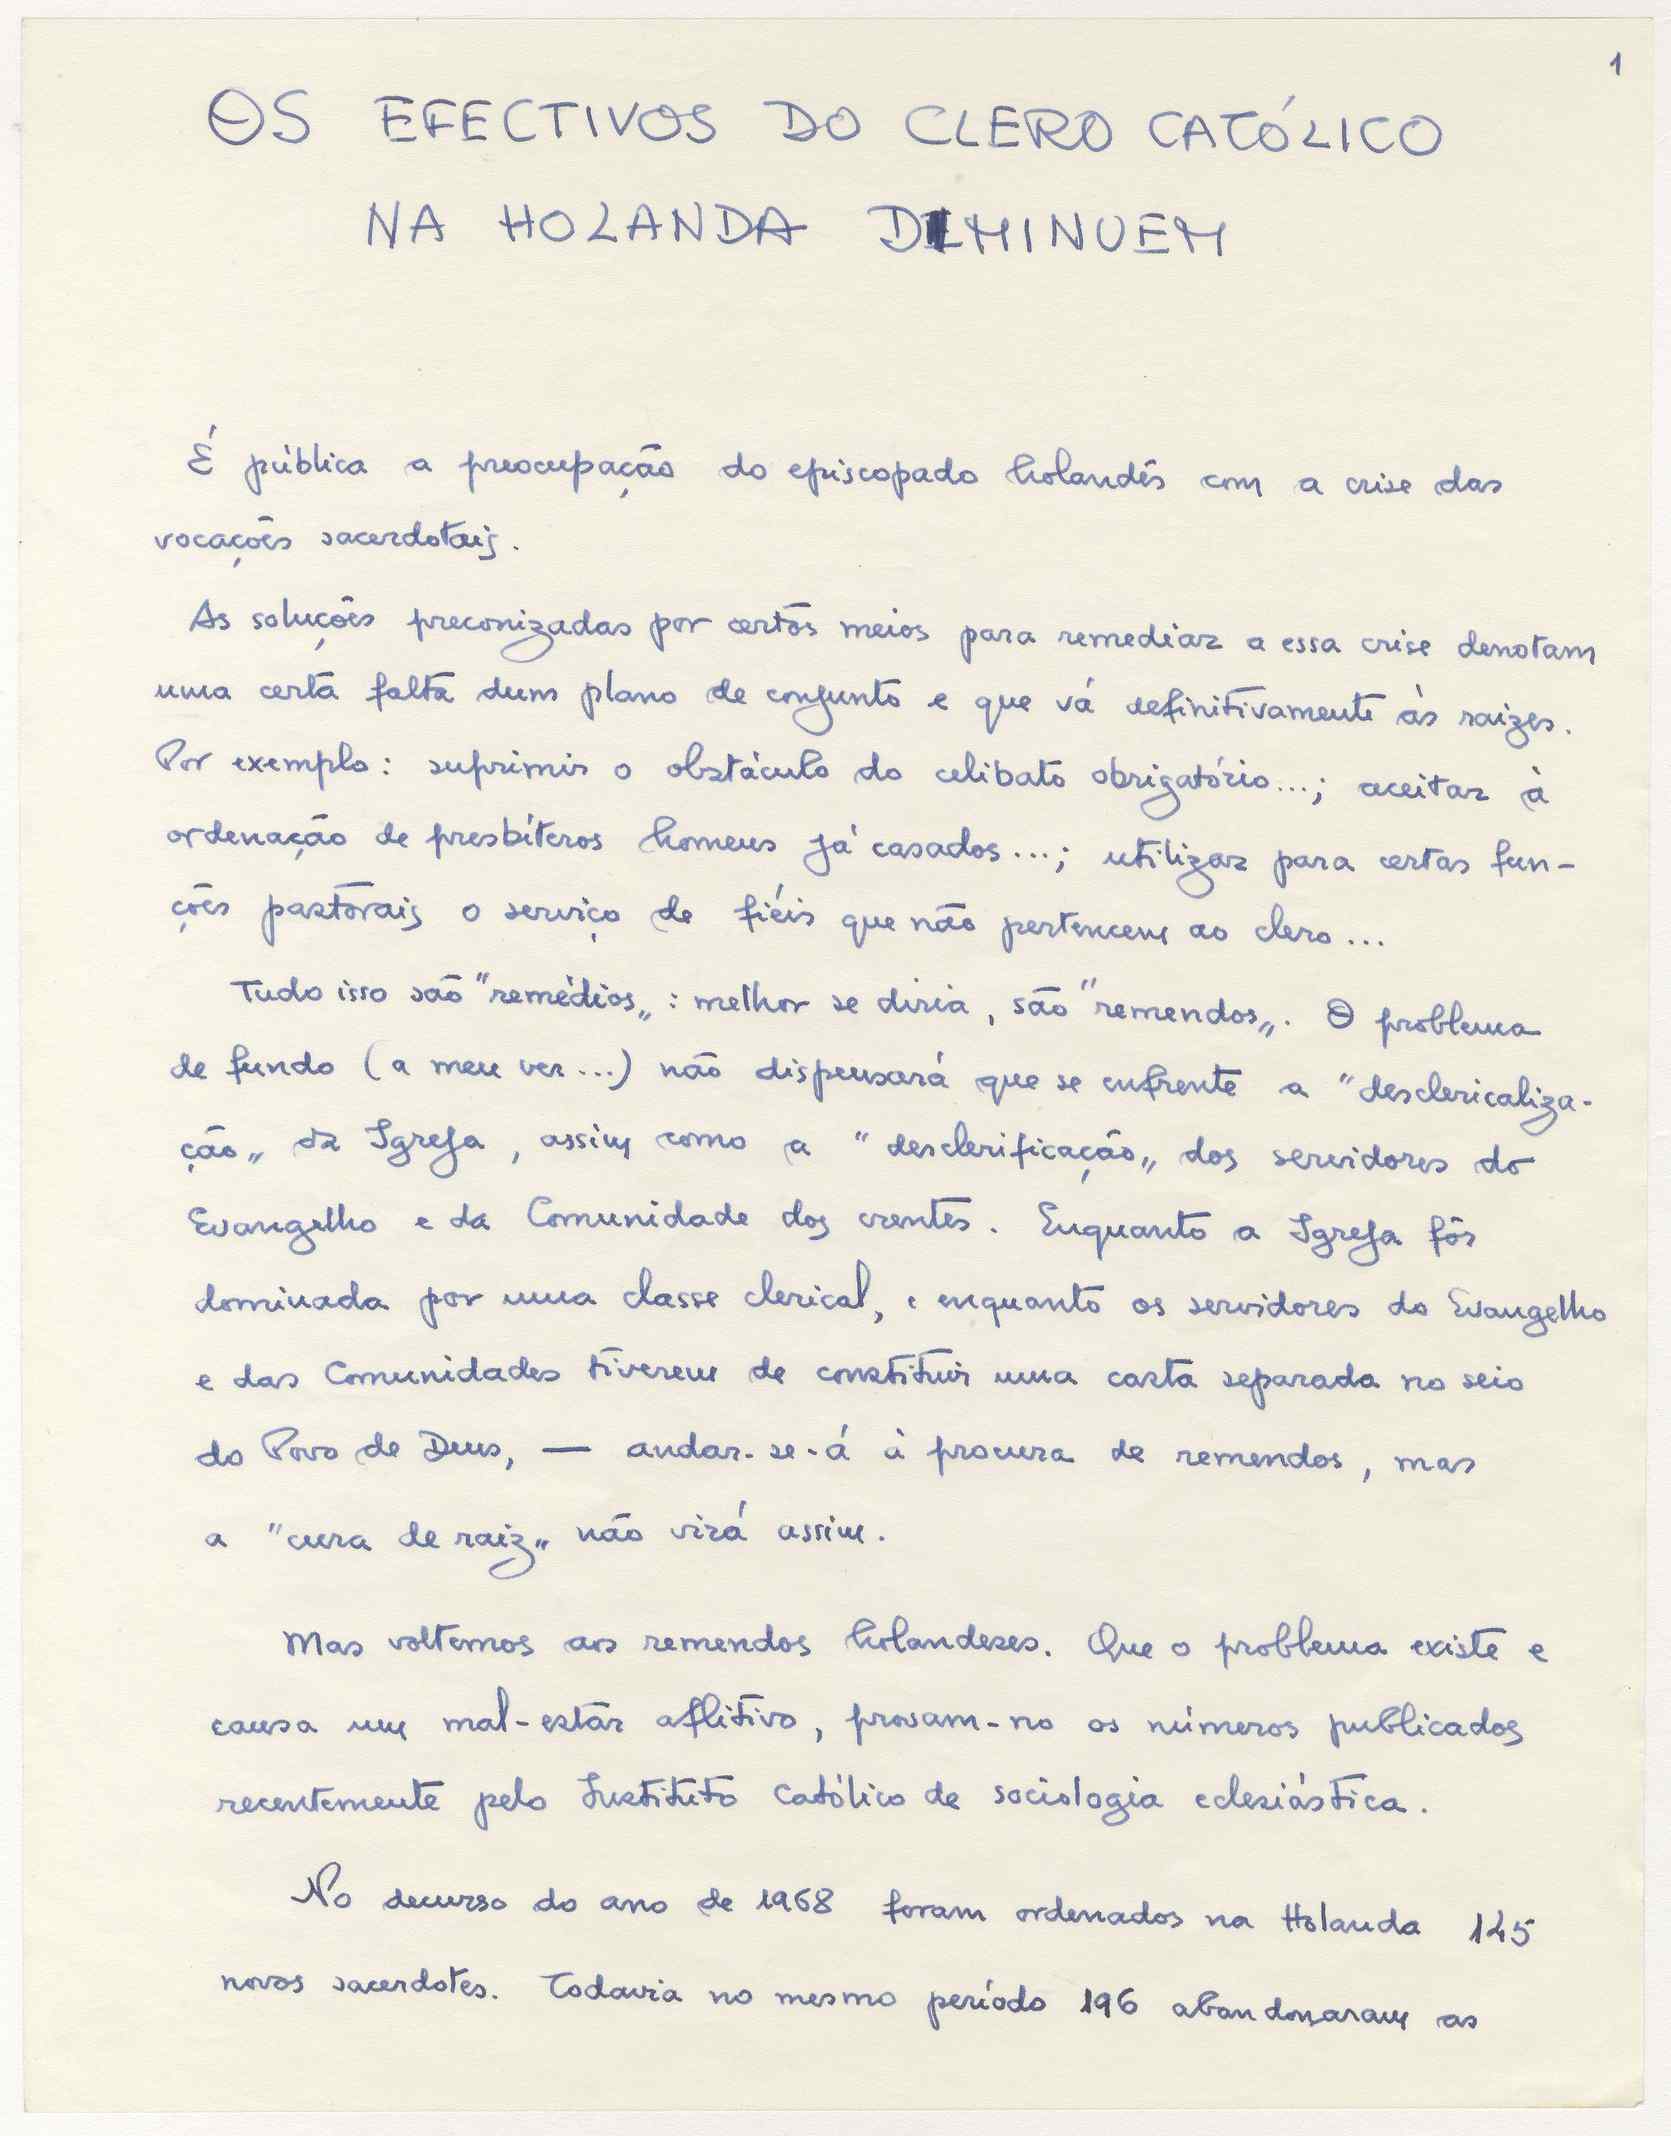 1
OS EFECTIVOS DO CLERO CATÓLICO
NA HOLANDA DIMINUEM
É pública a preocupação do episcopado holandês com a crise das
vocações sacerdotais.
As soluções preconizadas por certos meios para remediar a essa crise denotam
uma certa falta dum plano de conjunto e que vá definitivamente às raizes.
Por exemplo: suprimir o obstáculo do celibato obrigatório...; aceitar à
ordenação de presbíteros homens já casados...; utilizar para certas fun-
ções pastorais o serviço de fiéis que não pertencem ao clero...
Tudo isso são "remédios„: melhor se diria, são "remendos„. O problema
de fundo (a meu ver...) não dispensará que se enfrente a "desclericaliza-
ção„ da Igreja, assim como a "desclerificação„ dos servidores do
Evangelho e da Comunidade dos crentes. Enquanto a Igreja fôr
dominada por uma classe clerical, e enquanto os servidores do Evangelho
e das Comunidades tiverem de constituir uma casta separada no seio
do Povo de Deus, — andar-se-á à procura de remendos, mas
a "cura de raiz„ não virá assim.
Mas voltemos aos remendos holandeses. Que o problema existe e
causa um mal-estar aflitivo, provam-no os números publicados
recentemente pelo Instituto Católico de sociologia eclesiástica.
No decurso do ano de 1968 foram ordenados na Holanda 145
novos sacerdotes. Todavia no mesmo período 196 abandonaram as